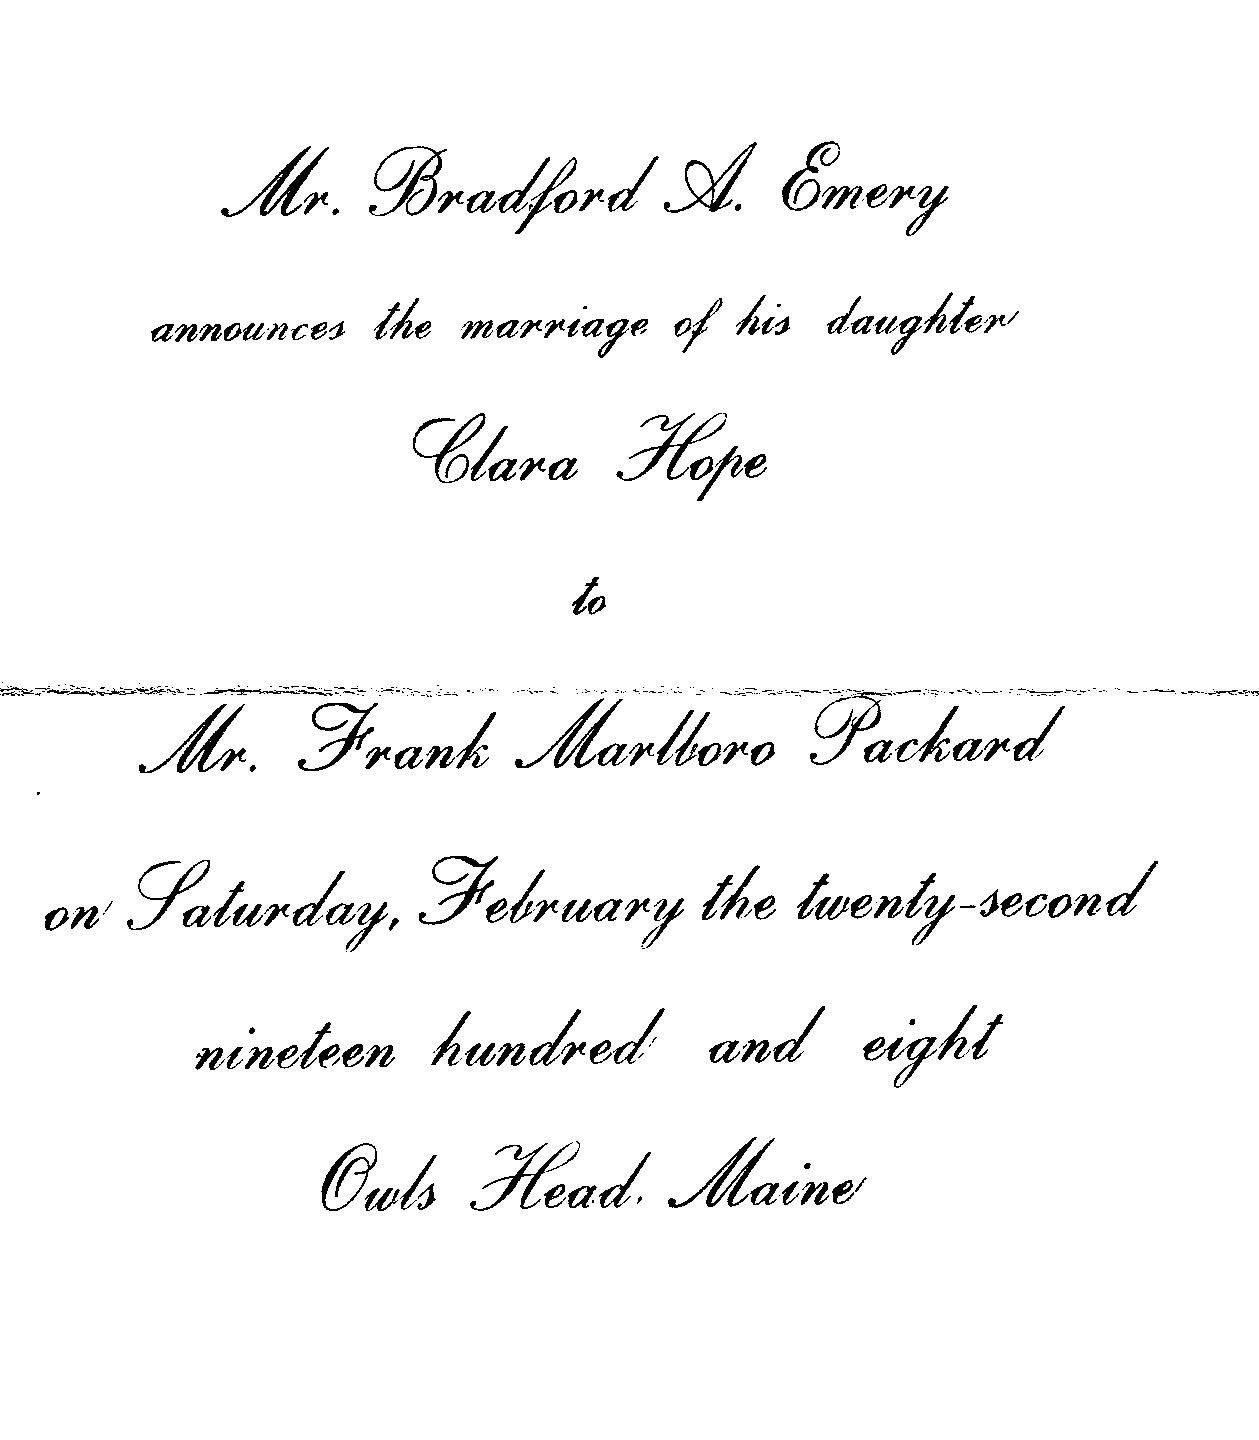 Mr. Bradford A. Emery
announces the marriage of his daughter
Clara Hope
to
Mr. Frank Marlboro Packard
on Saturday, February the twenty-second
nineteen hundred and eight
Owls Head. Maine